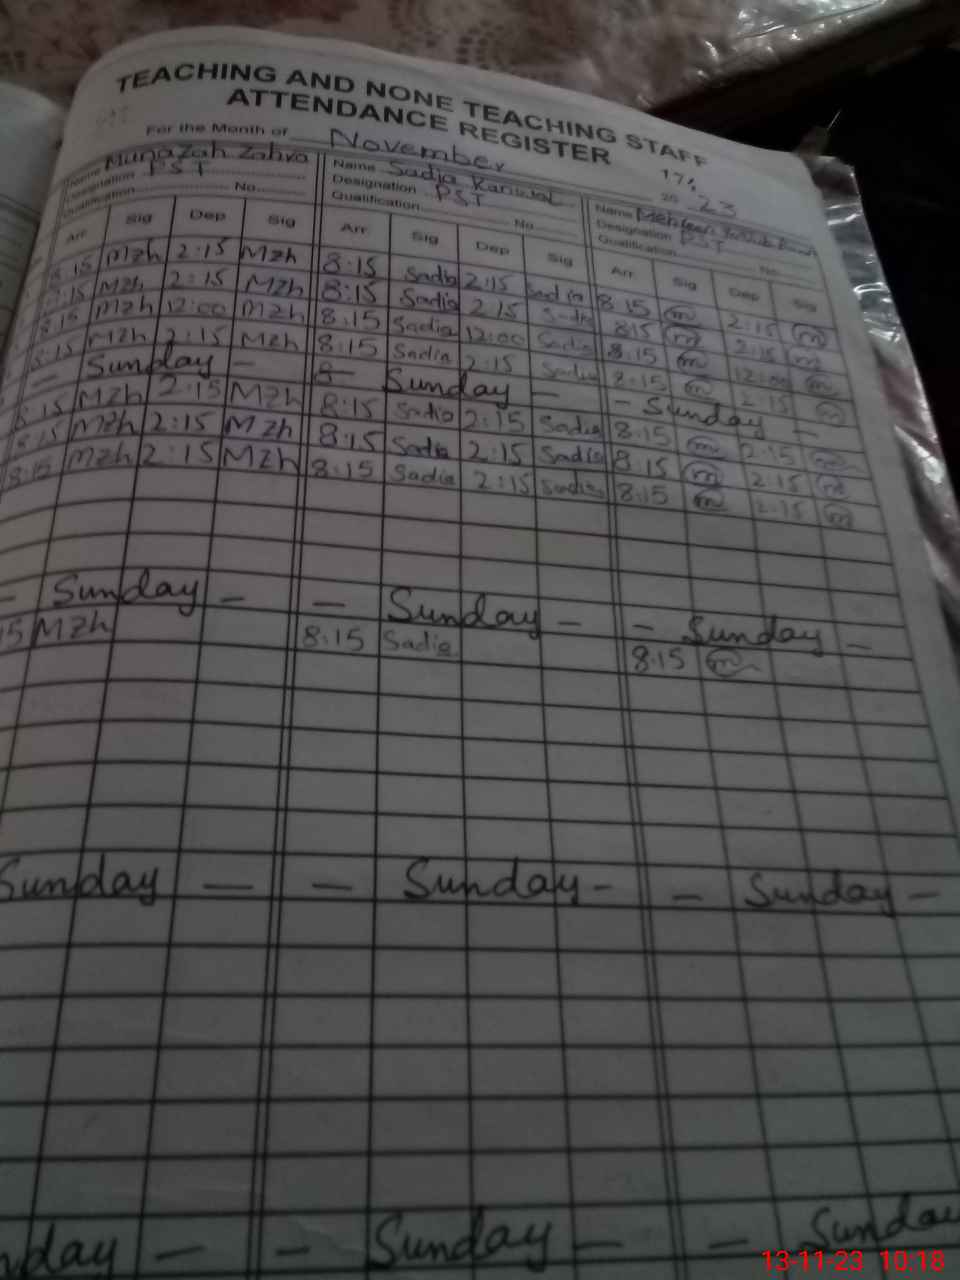 TEACHING AND NONE TEACHING STAFF
ATTENDANCE REGISTER
For the Month of November 20 23
Name Munazah Zahra Name Sadia Kanwal Name
Designation PST Designation PST Designation PST
Qualification No. Qualification No. Qualification No.
Arr Sig Dep Sig Arr Sig Dep Sig Arr Sig Dep Sig
8:15 Mzh 2:15 Mzh 8:15 Sadia 2:15 Sadia 8:15 m 2:15 m
8:15 Mzh 2:15 Mzh 8:15 Sadia 2:15 Sadia 8:15 m 2:15 m
8:15 Mzh 12:00 Mzh 8:15 Sadia 12:00 Sadia 8:15 m 12:00 m
8:15 Mzh 2:15 Mzh 8:15 Sadia 2:15 Sadia 8:15 m 2:15 m
- Sunday - - Sunday - - Sunday -
8:15 Mzh 2:15 Mzh 8:15 Sadia 2:15 Sadia 8:15 m 2:15 m
8:15 Mzh 2:15 Mzh 8:15 Sadia 2:15 Sadia 8:15 m 2:15 m
8:15 Mzh 2:15 Mzh 8:15 Sadia 2:15 Sadia 8:15 m 2:15 m
- Sunday - - Sunday - - Sunday -
15 Mzh 8:15 Sadia 8:15 m
Sunday - - Sunday - - Sunday -
nday - - Sunday - - Sunday
13-11-23 10:18